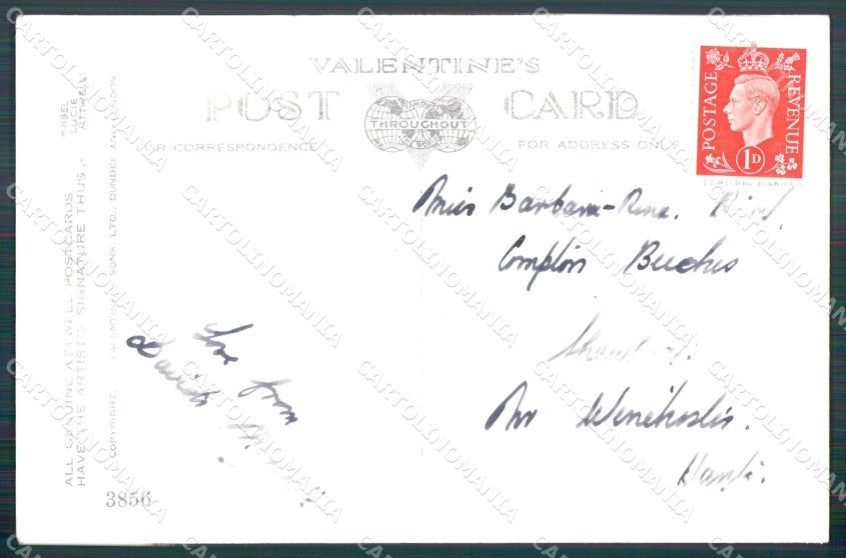 VALENTINE'S
POST CARD
THROUGHOUT
FOR CORRESPONDENCE
FOR ADDRESS ONLY
POSTAGE REVENUE
1D
ALL GENUINE ATTWELL POSTCARDS
HAVE THE ARTIST'S SIGNATURE THUS :-
MABEL
LUCIE
ATTWELL
COPYRIGHT. VALENTINE & SONS, LTD., DUNDEE AND LONDON
3856
Love from
David
Miss Barbara-Rena.
Compton Beeches
Nr Winchester.
Hants.
CARTOLINOMANIA